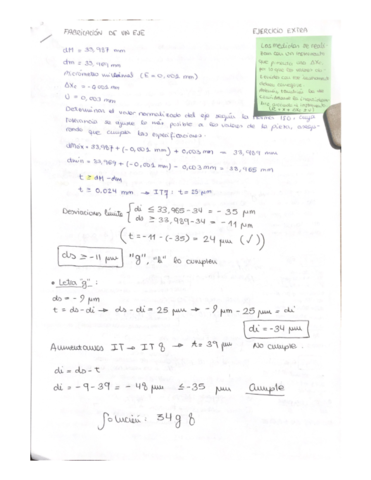 FABRICACIÓN DE UN EJE
EJERCICIO EXTRA
dM = 33,987 mm
dm = 33,969 mm
micrómetro milesimal (E = 0,001 mm)
ΔXc = -0.001 mm
U = 0,003 mm
Determinar el valor normalizado del eje según la norma ISO cuya
tolerancia se ajusta lo más posible a los valores de la pieza,
do que cumpla las especificaciones.
dmáx = 33,987 + (-0,001 mm) + 0,003 mm = 33,989 mm
dmin = 33,969 + (-0,001 mm) - 0,003 mm = 33,965 mm
t ≥ dM - dm
t ≥ 0.024 mm → IT7: t = 25 μm
Desviaciones límite { di ≤ 33,965 - 34 = - 35 μm
ds ≥ 33,989 - 34 = - 11 μm
( t = -11 - (-35) = 24 μm (✓) )
ds ≥ -11 μm "g", "h" lo cumplen
• Letra "g":
ds = - 9 μm
t = ds - di → ds - di = 25 μm → - 9 μm - 25 μm = di
di = -34 μm
Aumentamos IT → IT 8 → t = 39 μm No cumple.
di = ds - t
di = -9 - 39 = - 48 μm ≤ -35 μm Cumple
Solución: 34 g 8